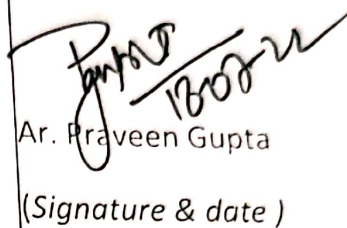 18-07-22
Ar. Praveen Gupta
(Signature & date )